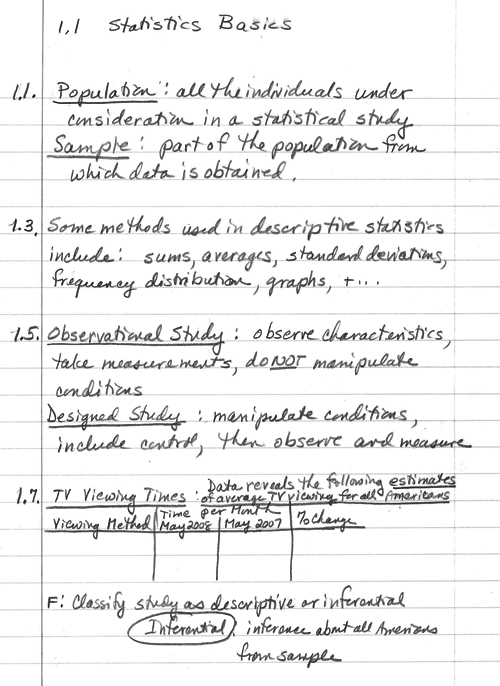 1.1 Statistics Basics
1.1. Population: all the individuals under
consideration in a statistical study
Sample: part of the population from
which data is obtained.
1.3. Some methods used in descriptive statistics
include: sums, averages, standard deviations,
frequency distribution, graphs, +...
1.5. Observational Study: observe characteristics,
take measurements, do NOT manipulate
conditions
Designed Study: manipulate conditions,
include control, then observe and measure
1.7. TV Viewing Times: Data reveals the following estimates
of average TV viewing for all Americans
Time per Month
Viewing Method May 2008 May 2007 % Change
F: Classify study as descriptive or inferential
Inferential, inference about all Americans
from sample